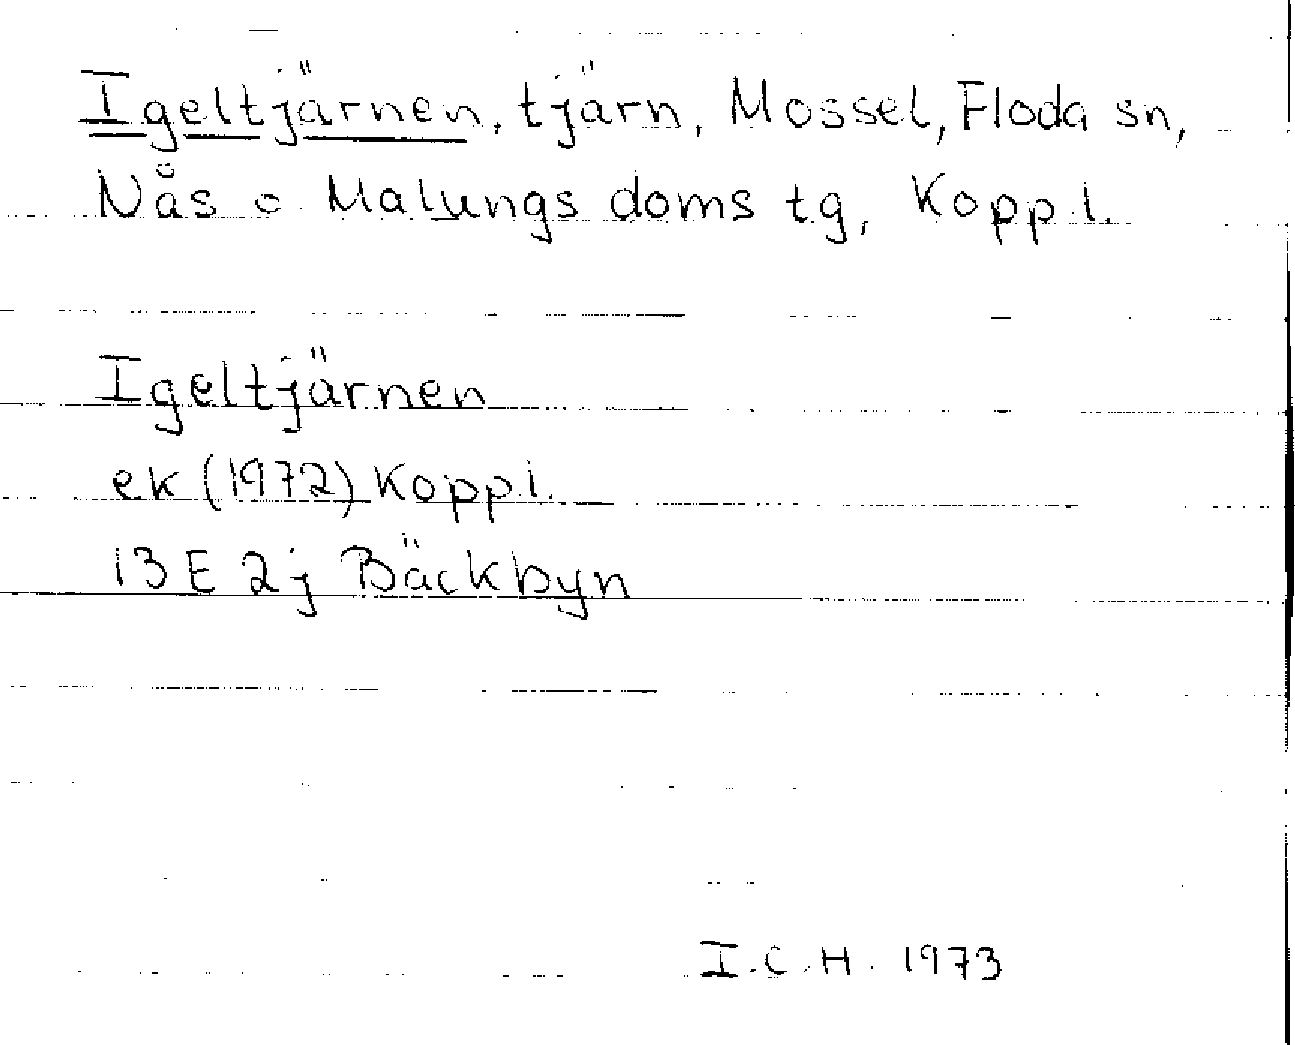 Igeltjärnen, tjärn, Mossel, Floda sn,
Nås o Malungs doms tg, Kopp.l.
Igeltjärnen
ek (1972) Kopp.l.
13 E 2j Bäckbyn
I.C.H. 1973